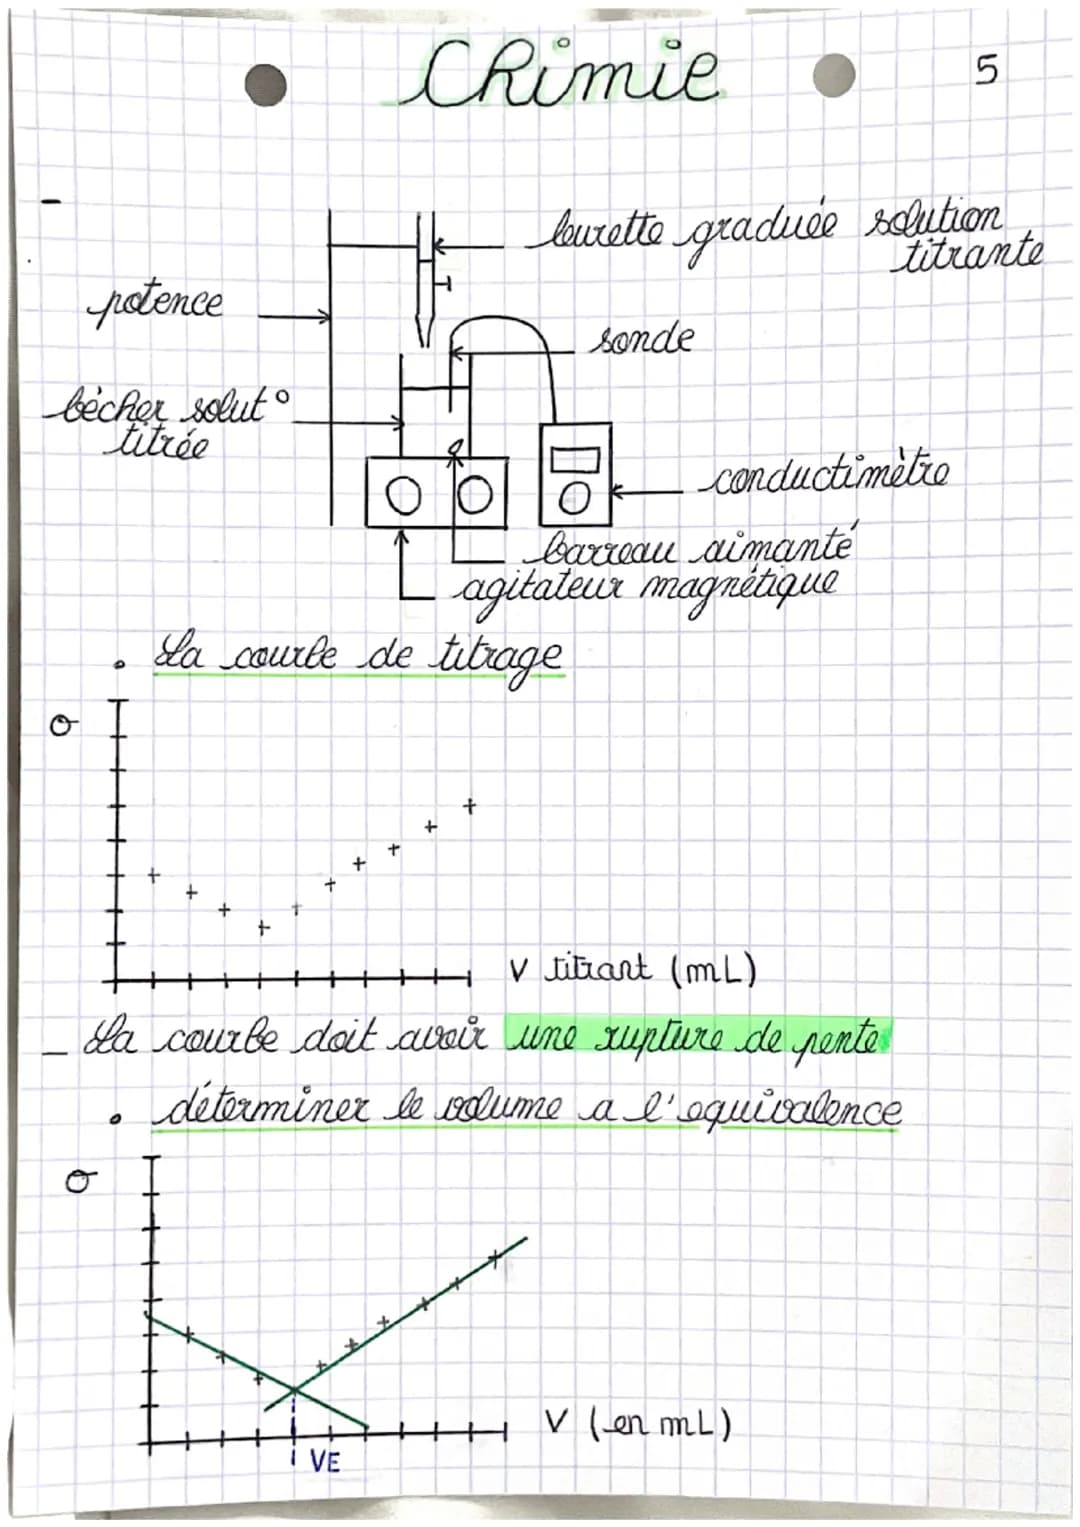 Chimie
5
burette graduée solution
titrante
potence
sonde
bécher solut°
titrée
conductimètre
barreau aimanté
agitateur magnétique
• La courbe de titrage
σ
V titrant (mL)
_ La courbe doit avoir une rupture de pente
• déterminer le volume a l'equivalence
σ
V (en mL)
VE